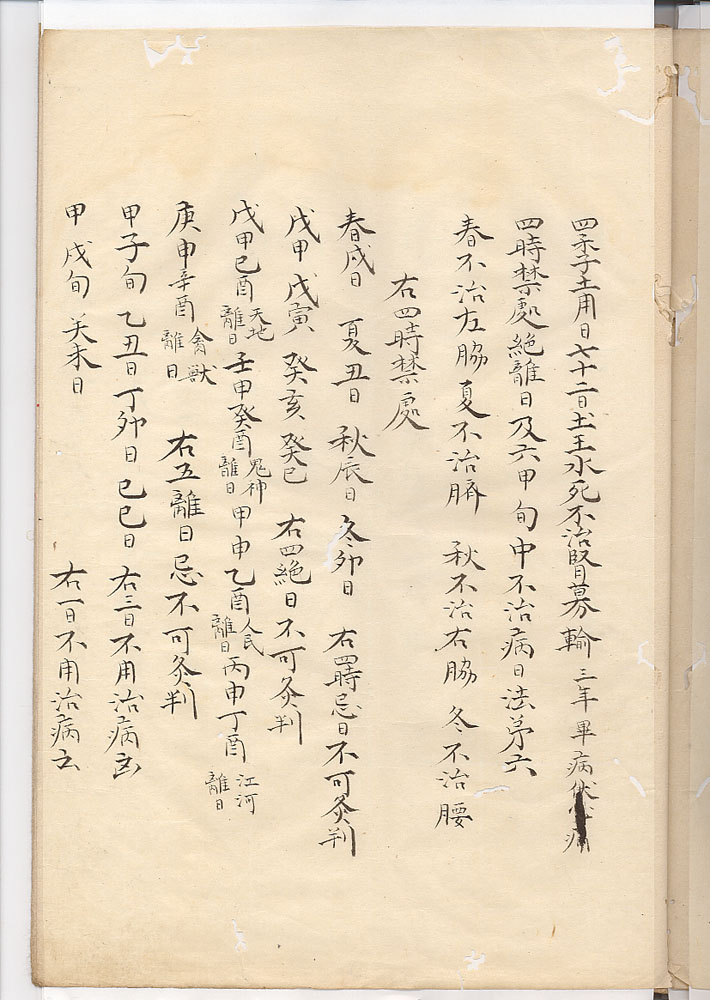 四季土用日七十二日土王水死不治腎募輸 三年畢病
四時禁處絕離日及六甲旬中不治病日法第六
春不治左脇 夏不治臍 秋不治右脇 冬不治腰
右四時禁處
春戌日 夏丑日 秋辰日 冬卯日 右四時忌日不可灸判
戊甲 戊寅 癸亥 癸巳 右四絕日不可灸判
戊甲己酉 天地離日 壬甲癸酉 鬼神離日 甲申乙酉 人民離日 丙申丁酉 江河離日
庚申辛酉 禽獸離日 右五離日忌不可灸判
甲子旬 乙丑日 丁卯日 巳巳日 右三日不用治病
甲戌旬 癸未日 右一日不用治病云